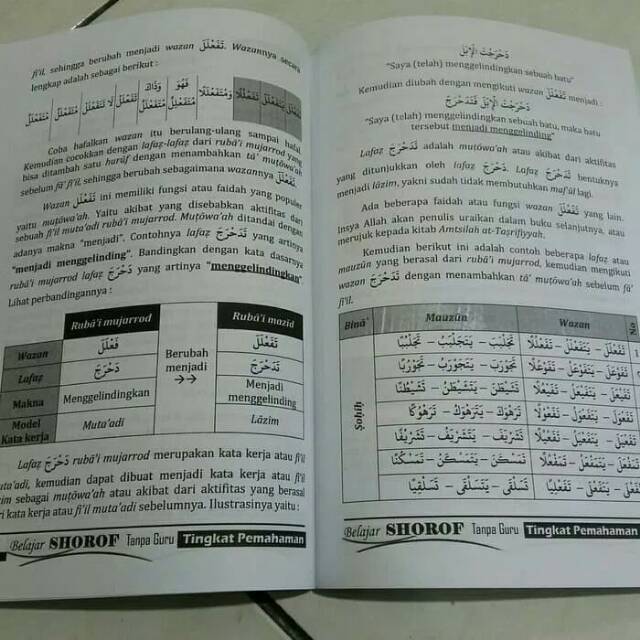 fi'il, sehingga berubah menjadi wazan تَفَعْلَلَ. Wazannya secara
lengkap adalah sebagai berikut :
تَفَعْلَلَ يَتَفَعْلَلُ تَفَعْلُلًا وَمُتَفَعْلَلًا فَهُوَ مُتَفَعْلِلٌ وَذَاكَ مُتَفَعْلَلٌ تَفَعْلَلْ لَا تَتَفَعْلَلْ مُتَفَعْلَلٌ مُتَفَعْلَلٌ
Coba hafalkan wazan itu berulang-ulang sampai hafal.
Kemudian cocokkan dengan lafaẓ-lafaẓ dari rubā'i mujarrod yang
bisa ditambah satu harūf dengan menambahkan tā' muṭōwa'ah
sebelum fā' fi'il, sehingga berubah sebagaimana wazannya تَفَعْلَلَ.
Wazan تَفَعْلَلَ ini memiliki fungsi atau faidah yang populer
yaitu muṭōwa'ah. Yaitu akibat yang disebabkan aktifitas dari
sebuah fi'il muta'adi rubā'i mujarrod. Muṭōwa'ah ditandai dengan
adanya makna "menjadi". Contohnya lafaẓ تَدَحْرَجَ yang artinya
"menjadi menggelinding". Bandingkan dengan kata dasarnya
rubā'i mujarrod lafaẓ دَحْرَجَ yang artinya "menggelindingkan".
Lihat perbandingannya :
Rubā'i mujarrod Rubā'i mazid
Wazan فَعْلَلَ Berubah menjadi →→ تَفَعْلَلَ
Lafaẓ دَحْرَجَ تَدَحْرَجَ
Makna Menggelindingkan Menjadi menggelinding
Model Kata kerja Muta'adi Lāzim
Lafaẓ دَحْرَجَ rubā'i mujarrod merupakan kata kerja atau fi'il
uta'adi, kemudian dapat dibuat menjadi kata kerja atau fi'il
zim sebagai muṭōwa'ah atau akibat dari aktifitas yang berasal
ri kata kerja atau fi'il muta'adi sebelumnya. Ilustrasinya yaitu :
Belajar SHOROF Tanpa Guru Tingkat Pemahaman
دَحْرَجْتُ الْإِبْلَ
"Saya (telah) menggelindingkan sebuah batu"
Kemudian diubah dengan mengikuti wazan تَفَعْلَلَ menjadi :
دَحْرَجْتُ الْإِبْلَ فَتَدَحْرَجَ
"Saya (telah) menggelindingkan sebuah batu, maka batu
tersebut menjadi menggelinding"
Lafaẓ تَدَحْرَجَ adalah muṭōwa'ah atau akibat dari aktifitas
yang ditunjukkan oleh lafaẓ دَحْرَجَ. Lafaẓ تَدَحْرَجَ bentuknya
menjadi lāzim, yakni sudah tidak membutuhkan maf'ūl lagi.
Ada beberapa faidah atau fungsi wazan تَفَعْلَلَ yang lain.
Insya Allah akan penulis uraikan dalam buku selanjutnya, atau
merujuk kepada kitab Amtsilah at-Taṣrīfiyyah.
Kemudian berikut ini adalah contoh beberapa lafaẓ atau
mauzūn yang berasal dari rubā'i mujarrod, kemudian mengikuti
wazan تَدَحْرَجَ dengan menambahkan tā' muṭōwa'ah sebelum fā'
fi'il.
Binā' Mauzūn Wazan No
Ṣoḥīḥ
تَجَلْبَبَ – يَتَجَلْبَبُ – تَجَلْبُبًا تَفَعْلَلَ – يَتَفَعْلَلُ – تَفَعْلُلًا
تَجَوْرَبَ – يَتَجَوْرَبُ – تَجَوْرُبًا تَفَوْعَلَ – يَتَفَوْعَلُ – تَفَوْعُلًا
تَشَيْطَنَ – يَتَشَيْطَنُ – تَشَيْطُنًا تَفَيْعَلَ – يَتَفَيْعَلُ – تَفَيْعُلًا
تَرَهْوَكَ – يَتَرَهْوَكُ – تَرَهْوُكًا تَفَعْوَلَ – يَتَفَعْوَلُ – تَفَعْوُلًا
تَشَرْيَفَ – يَتَشَرْيَفُ – تَشَرْيُفًا تَفَعْيَلَ – يَتَفَعْيَلُ – تَفَعْيُلًا
تَمَسْكَنَ – يَتَمَسْكَنُ – تَمَسْكُنًا تَمَفْعَلَ – يَتَمَفْعَلُ – تَمَفْعُلًا
تَسَلْقَى – يَتَسَلْقَى – تَسَلْقِيًا تَفَعْلَى – يَتَفَعْلَى – تَفَعْلِيًا
Belajar SHOROF Tanpa Guru Tingkat Pemahaman